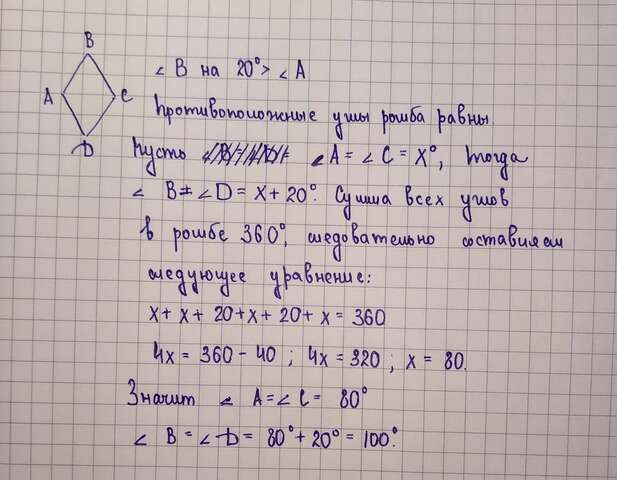 B
A
C
D
∠ B на 20° > ∠ A
Противоположные углы ромба равны.
Пусть ∠ A = ∠ C = X°, тогда
∠ B = ∠ D = X + 20°. Сумма всех углов
в ромбе 360°, следовательно составляем
следующее уравнение:
X + X + 20 + X + 20 + X = 360
4X = 360 - 40 ; 4X = 320 ; X = 80.
Значит ∠ A = ∠ C = 80°
∠ B = ∠ D = 80° + 20° = 100°.